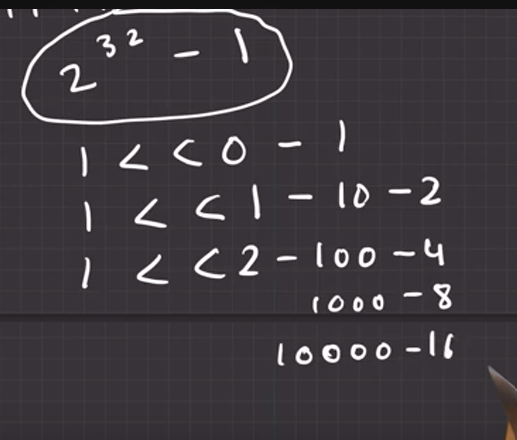 2^32 - 1
1 << 0 - 1
1 << 1 - 10 - 2
1 << 2 - 100 - 4
1000 - 8
10000 - 16